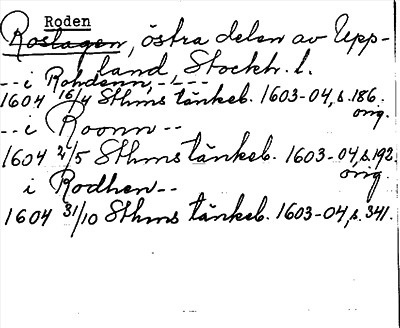 Roden
Roslagen, östra delen av Upp-
land, Stockh. l.
-- i Rohdenn, -- --
1604 16/4 Sthms tänkeb. 1603-04, s. 186.
orig.
-- i Roonn --
1604 2/5 Sthms tänkeb. 1603-04, s. 192.
orig.
i Rodhen --
1604 31/10 Sthms tänkeb. 1603-04, s. 341.